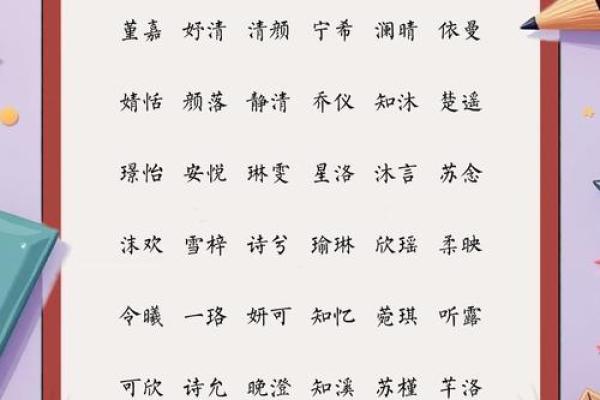 堇嘉 妤清 清颜 宁希 澜晴 依曼
婧恬 颜落 静清 乔仪 知沐 楚遥
璟怡 安悦 琳雯 星洛 沐言 苏念
沫欢 雪梓 诗兮 瑜琳 欣瑶 柔映
令曦 一珞 妍可 知忆 菀琪 听露
可欣 诗允 晚澄 知溪 苏槿 芊洛